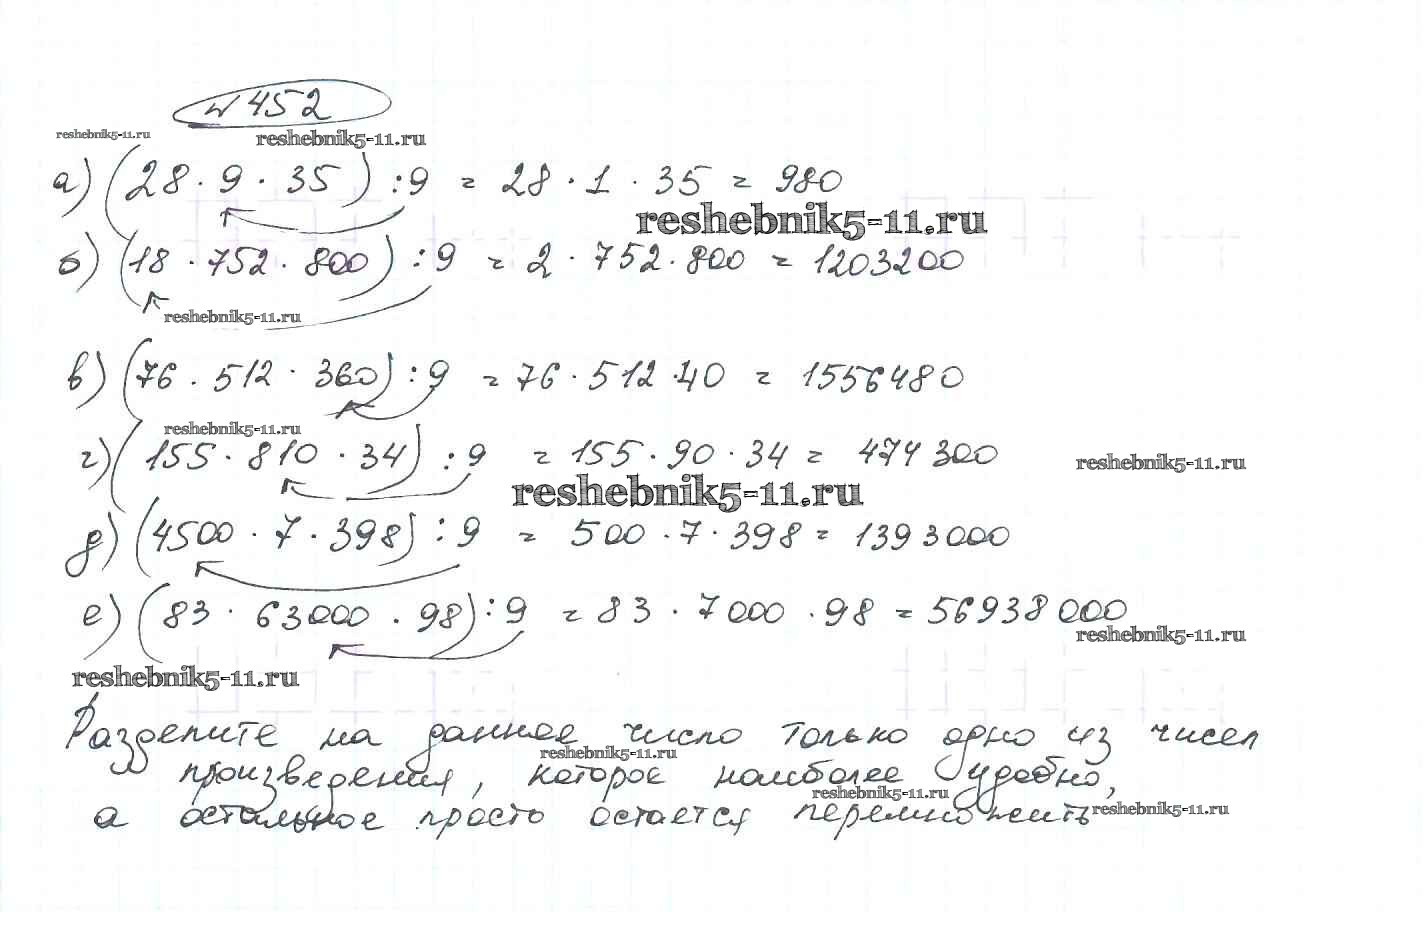 № 452
reshebnik5-11.ru reshebnik5-11.ru
а) (28 · 9 · 35) : 9 = 28 · 1 · 35 = 980
reshebnik5-11.ru
б) (18 · 752 · 800) : 9 = 2 · 752 · 800 = 1203200
reshebnik5-11.ru
в) (76 · 512 · 360) : 9 = 76 · 512 · 40 = 1556480
reshebnik5-11.ru
г) (155 · 810 · 34) : 9 = 155 · 90 · 34 = 474300
reshebnik5-11.ru
reshebnik5-11.ru
д) (4500 · 7 · 398) : 9 = 500 · 7 · 398 = 1393000
е) (83 · 63000 · 98) : 9 = 83 · 7000 · 98 = 56938000
reshebnik5-11.ru
reshebnik5-11.ru
Разделите на данное число только одно из чисел
reshebnik5-11.ru
произведения, которое наиболее удобно,
reshebnik5-11.ru
а остальное просто остается перемножить
reshebnik5-11.ru